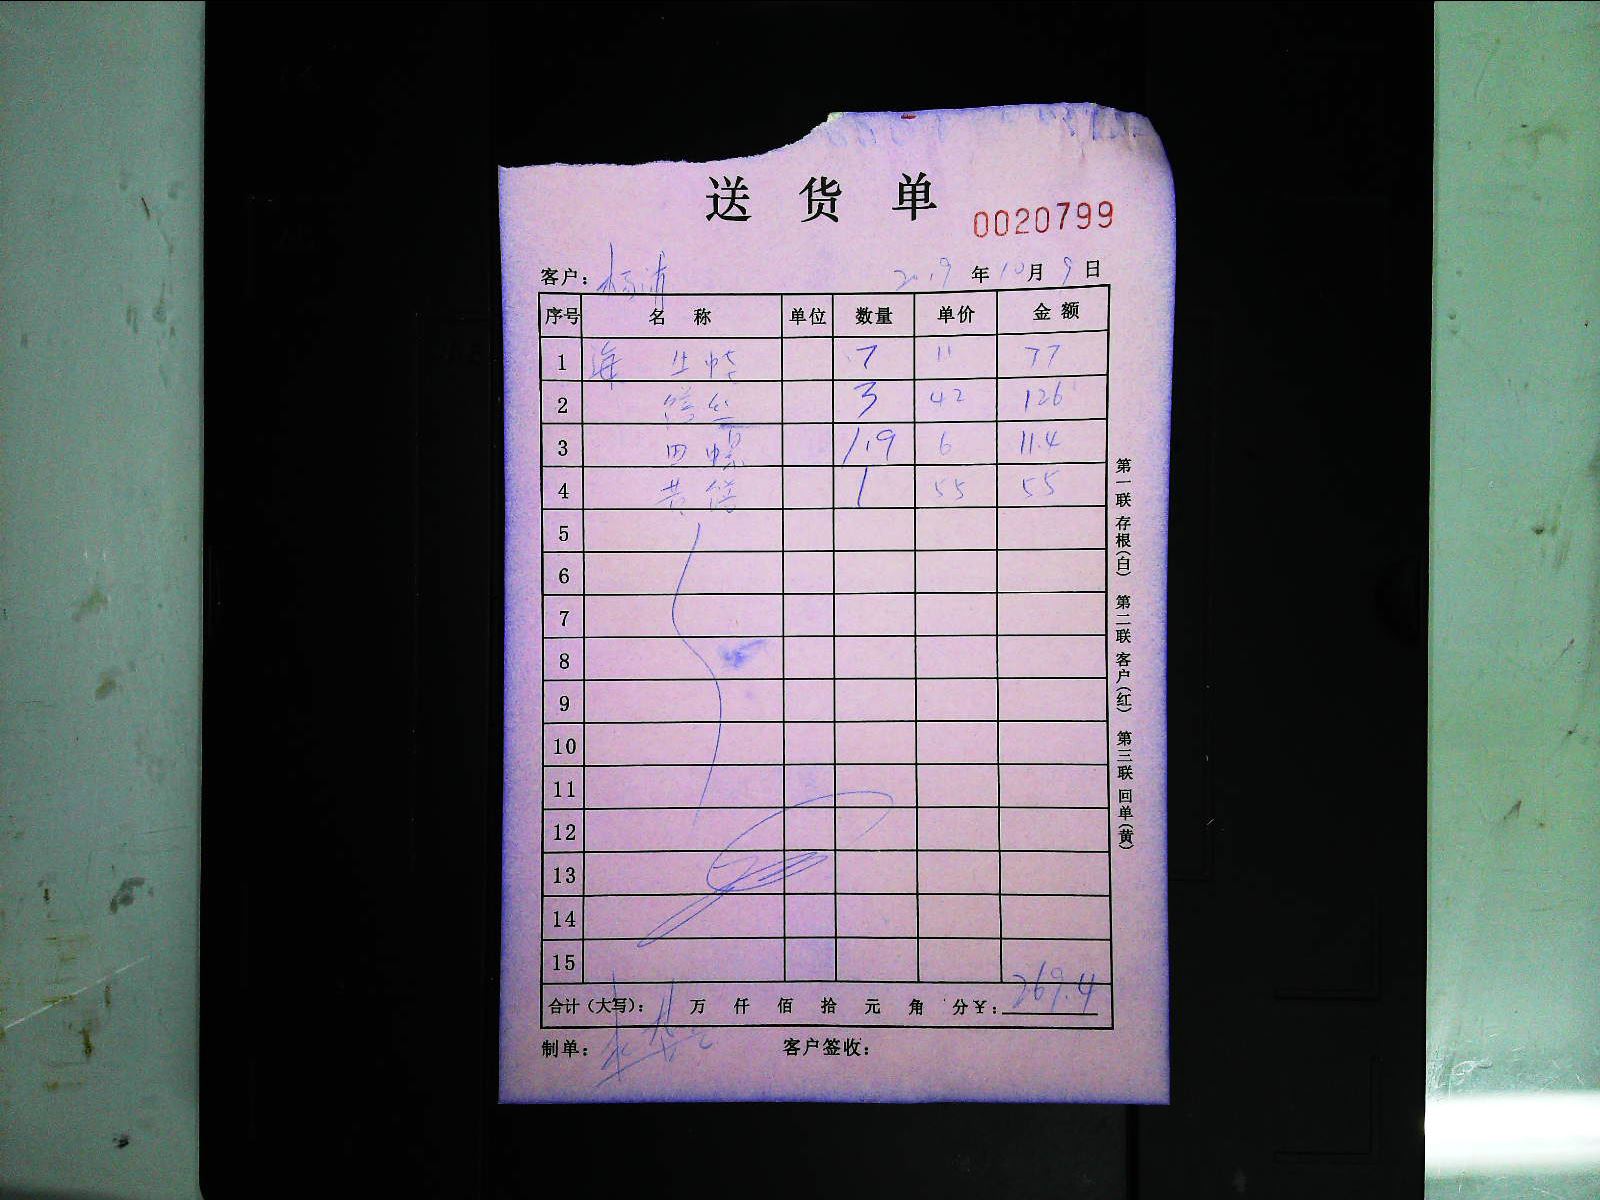 送货单
0020799
客户： 2019年10月9日
序号 名称 单位 数量 单价 金额
1 海 7 11 77
2 3 42 126
3 田螺 1.9 6 11.4
4 黄 1 55 55
5
6
7
8
9
10
11
12
13
14
15
合计（大写）： 万 仟 佰 拾 元 角 分￥：269.4
制单： 客户签收：
第一联 存根（白） 第二联 客户（红） 第三联 回单（黄）